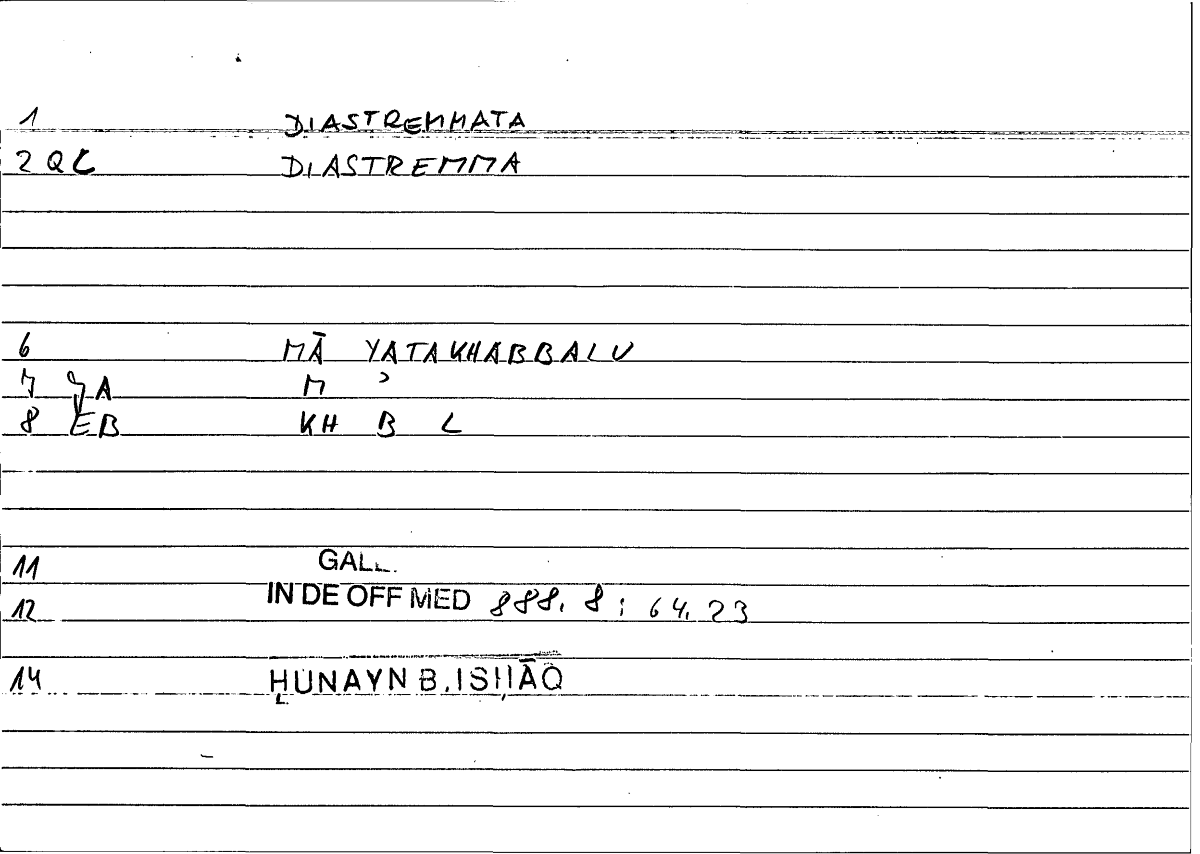 1 DIASTREMMATA
2 QC DIASTREMMA
6 MĀ YATAKHABBALU
7 JA M ʾ
8 EB KH B L
11 GAL.
12 IN DE OFF MED 888. 8 ; 64. 23
14 ḤUNAYN B. ISḤĀQ